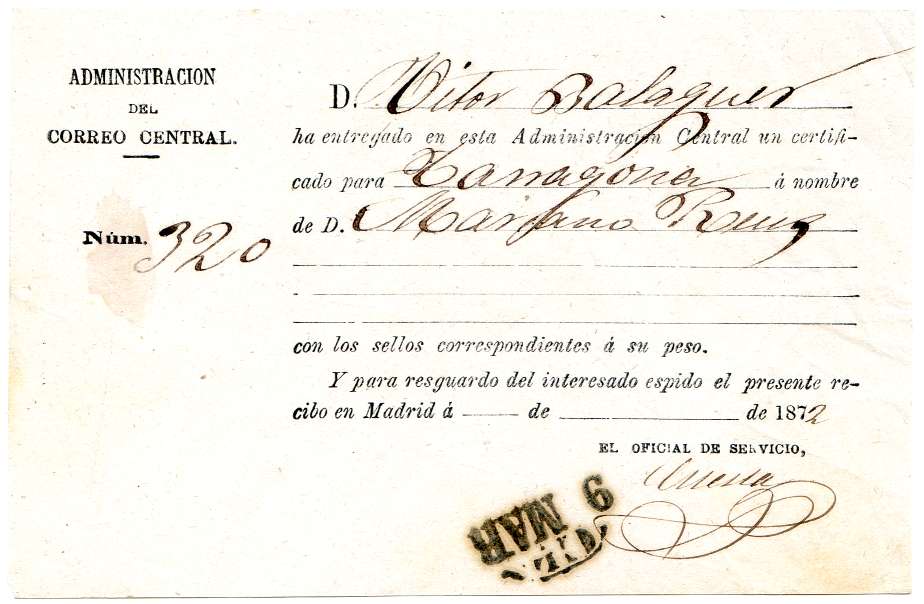 ADMINISTRACION
DEL
CORREO CENTRAL.
Núm. 320
D. Vitor Balaguer
ha entregado en esta Administracion Central un certifi-
cado para Tarragona á nombre
de D. Mariano Reus
con los sellos correspondientes á su peso.
Y para resguardo del interesado espido el presente re-
cibo en Madrid á de de 1872
EL OFICIAL DE SERVICIO,
MAR